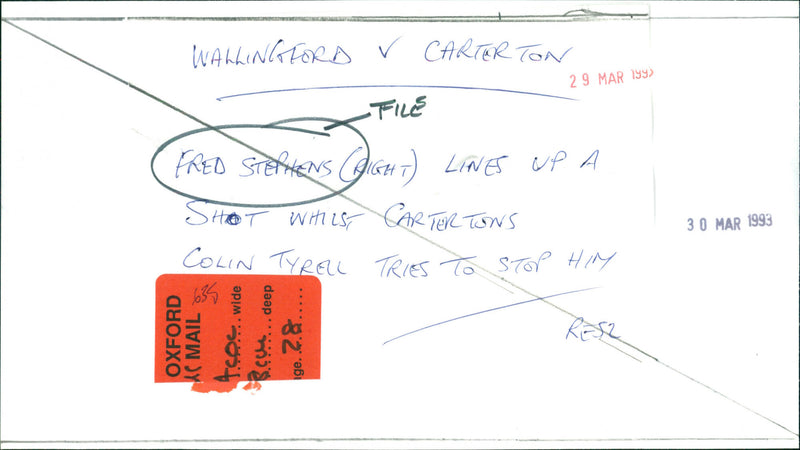 WALLINGFORD V CARTERTON
29 MAR 1993
FILE
FRED STEPHENS (RIGHT) LINES UP A
SHOT WHILST CARTERTONS
30 MAR 1993
COLIN TYRELL TRIES TO STOP HIM
OXFORD
MAIL
wide
deep
28